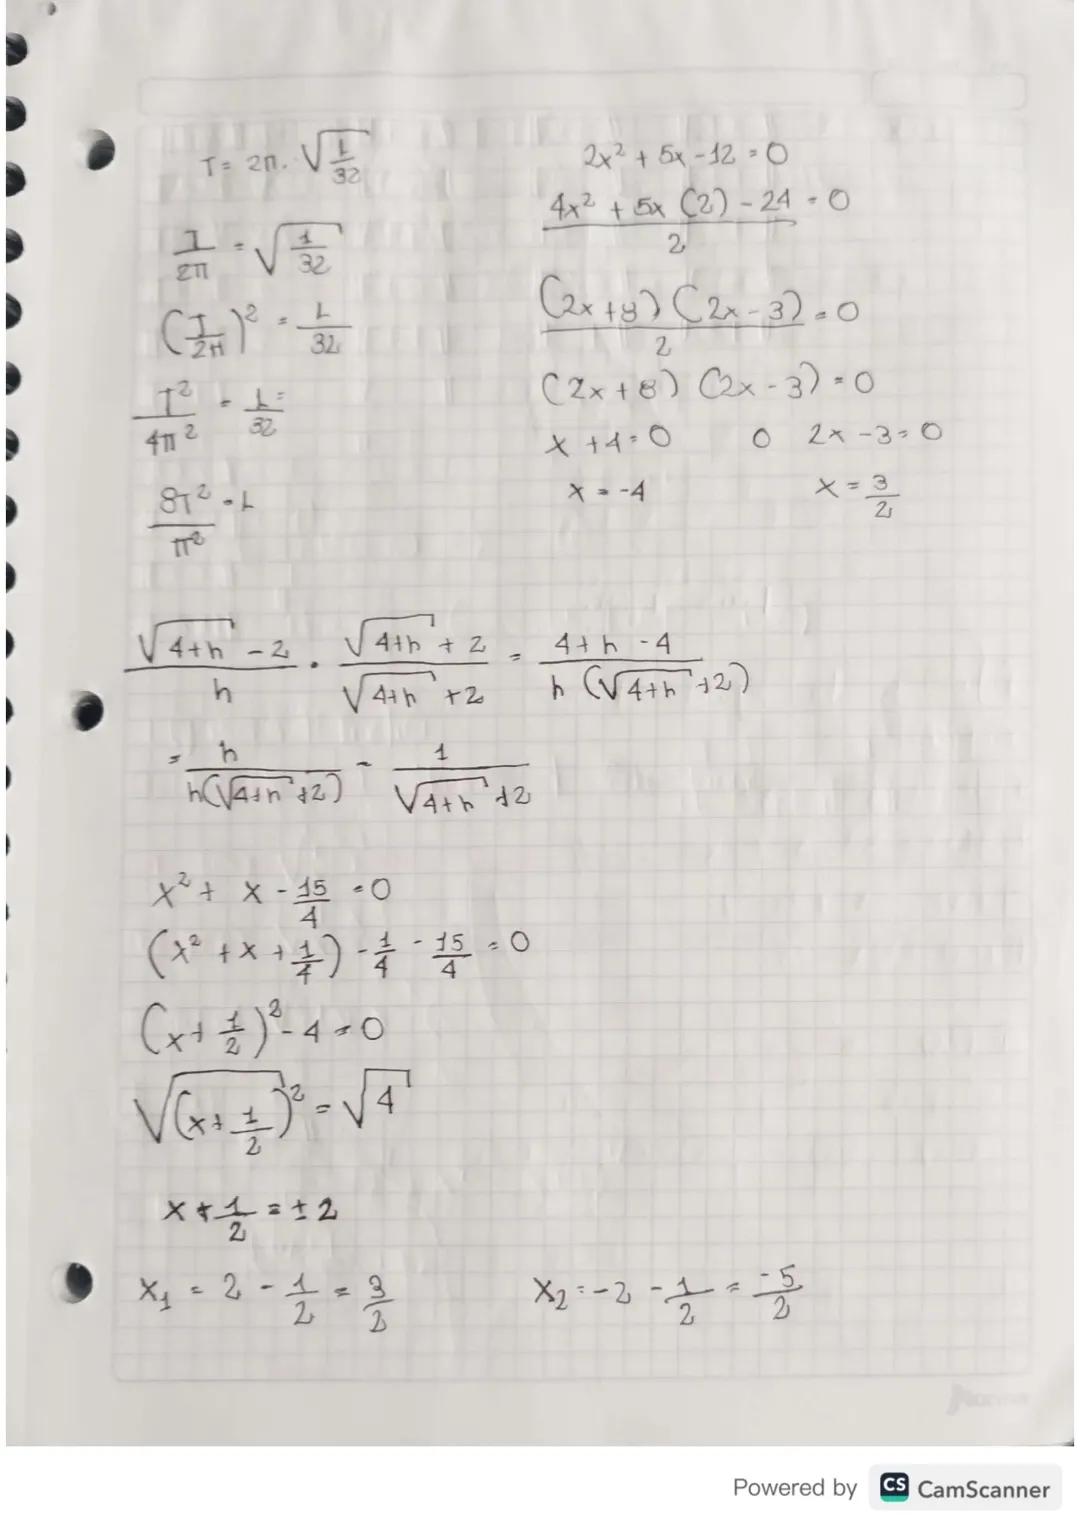 T = 2π · √(L/32)
T/2π = √(1/32)
(T/2π)² = L/32
T²/4π² = L/32 =
8T²/π² = L
2x² + 5x - 12 = 0
(4x² + 5x (2) - 24)/2 = 0
((2x + 8) (2x - 3))/2 = 0
(2x + 8) (2x - 3) = 0
x + 4 = 0 o 2x - 3 = 0
x = -4 x = 3/2
(√(4+h) - 2)/h · (√(4+h) + 2)/(√(4+h) + 2) = (4 + h - 4)/(h (√(4+h) + 2))
= h/(h(√(4+h) + 2)) = 1/(√(4+h) + 2)
x² + x - 15/4 = 0
(x² + x + 1/4) - 1/4 - 15/4 = 0
(x + 1/2)² - 4 = 0
√(x + 1/2)² = √4
x + 1/2 = ± 2
x₁ = 2 - 1/2 = 3/2 x₂ = -2 - 1/2 = -5/2
Norma
Powered by CS CamScanner